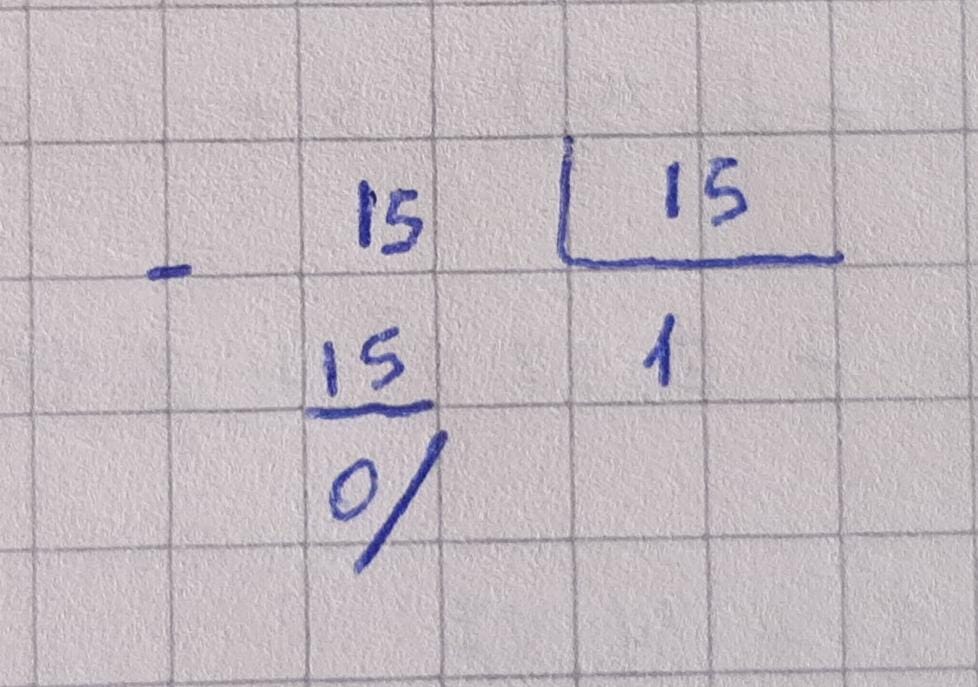 15 15
-
15 1
0/